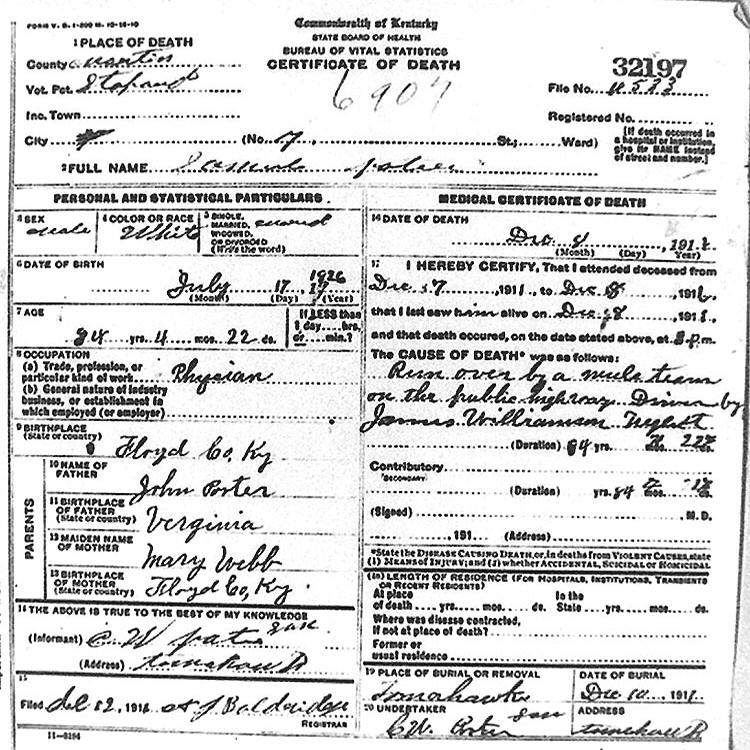 FORM V. S. 1-200 M. 10-16-10
Commonwealth of Kentucky
STATE BOARD OF HEALTH
BUREAU OF VITAL STATISTICS
CERTIFICATE OF DEATH
1 PLACE OF DEATH
County Martin
Vot. Pct.
Inc. Town
City (No. St.; Ward)
6907
32197
File No.
Registered No.
[If death occurred in a hospital or institution, give its NAME instead of street and number.]
2 FULL NAME Samuel
PERSONAL AND STATISTICAL PARTICULARS
3 SEX
male
4 COLOR OR RACE
White
5 SINGLE, MARRIED, WIDOWED, OR DIVORCED (Write the word)
6 DATE OF BIRTH
July 17 1826
(Month) (Day) (Year)
7 AGE
84 yrs. 4 mos. 22 ds.
If LESS than 1 day....hrs. or....min.?
8 OCCUPATION
(a) Trade, profession, or particular kind of work Physian
(b) General nature of industry business, or establishment in which employed (or employer)
9 BIRTHPLACE (State or country)
Floyd Co, Ky
PARENTS
10 NAME OF FATHER
John Porter
11 BIRTHPLACE OF FATHER (State or country)
Verginia
12 MAIDEN NAME OF MOTHER
Mary Webb
13 BIRTHPLACE OF MOTHER (State or country)
Floyd Co, Ky.
14 THE ABOVE IS TRUE TO THE BEST OF MY KNOWLEDGE
(Informant) C W son
(Address)
15
Filed 191 Baldridge
REGISTRAR
11-3184
MEDICAL CERTIFICATE OF DEATH
16 DATE OF DEATH
Dec 8, 191
(Month) (Day) (Year)
17 I HEREBY CERTIFY, That I attended deceased from
Dec 7 191, to Dec 8, 191
that I last saw him alive on Dec 8 191,
and that death occured, on the date stated above, at 8 P.m.
The CAUSE OF DEATH* was as follows:
Run over by a mule team
on the public highway Driven by
James Williamson
(Duration) 84 22 ds.
Contributory
SECONDARY
(Duration) yrs. 84 mos. ds.
(Signed) M.D.
191 (Address)
*State the DISEASE CAUSING DEATH, or, in deaths from VIOLENT CAUSES, state (1) MEANS OF INJURY; and (2) whether ACCIDENTAL, SUICIDAL or HOMICIDAL
18 LENGTH OF RESIDENCE (FOR HOSPITALS, INSTITUTIONS, TRANSIENTS OR RECENT RESIDENTS)
At place of death yrs. mos. ds. In the State yrs. mos. ds.
Where was disease contracted, If not at place of death?
Former or usual residence
19 PLACE OF BURIAL OR REMOVAL
Tomahawk
DATE OF BURIAL
Dec 10, 191
20 UNDERTAKER
C W. Porter son
ADDRESS